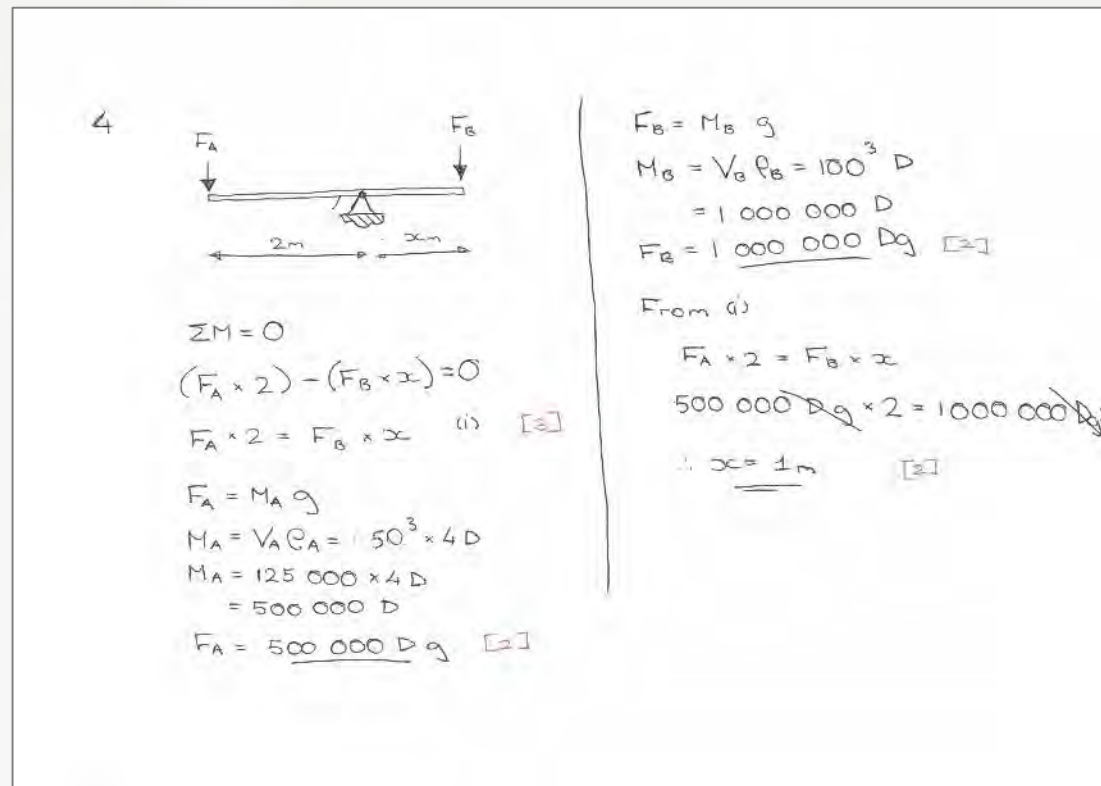 4
F_A
F_B
2m
xm
ΣM = 0
(F_A × 2) - (F_B × x) = 0
F_A × 2 = F_B × x (i) [3]
F_A = M_A g
M_A = V_A ρ_A = 50³ × 4 D
M_A = 125 000 × 4 D
= 500 000 D
F_A = 500 000 D g [2]
F_B = M_B g
M_B = V_B ρ_B = 100³ D
= 1 000 000 D
F_B = 1 000 000 Dg [2]
From (i)
F_A × 2 = F_B × x
500 000 D g × 2 = 1 000 000 Dg
∴ x = 1m [2]